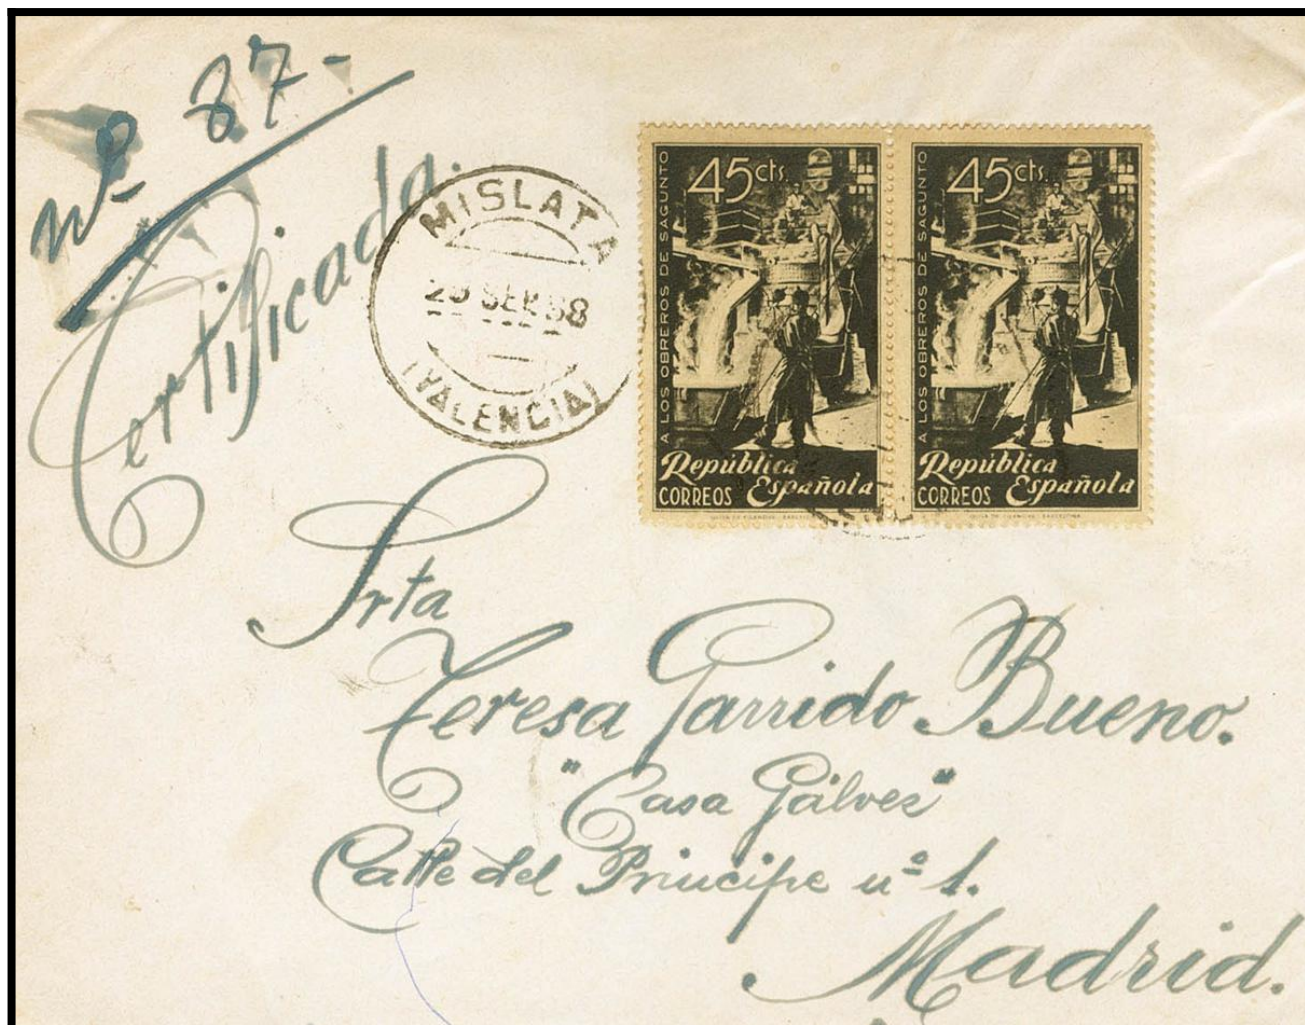 nº 87-
Certificada.
MISLATA
(VALENCIA)
45 cts.
A LOS OBREROS DE SAGUNTO
República
CORREOS Española
45 cts.
A LOS OBREROS DE SAGUNTO
República
CORREOS Española
Srta
Teresa Garrido Bueno.
"Casa Gálvez"
Calle del Principe nº 1.
Madrid.